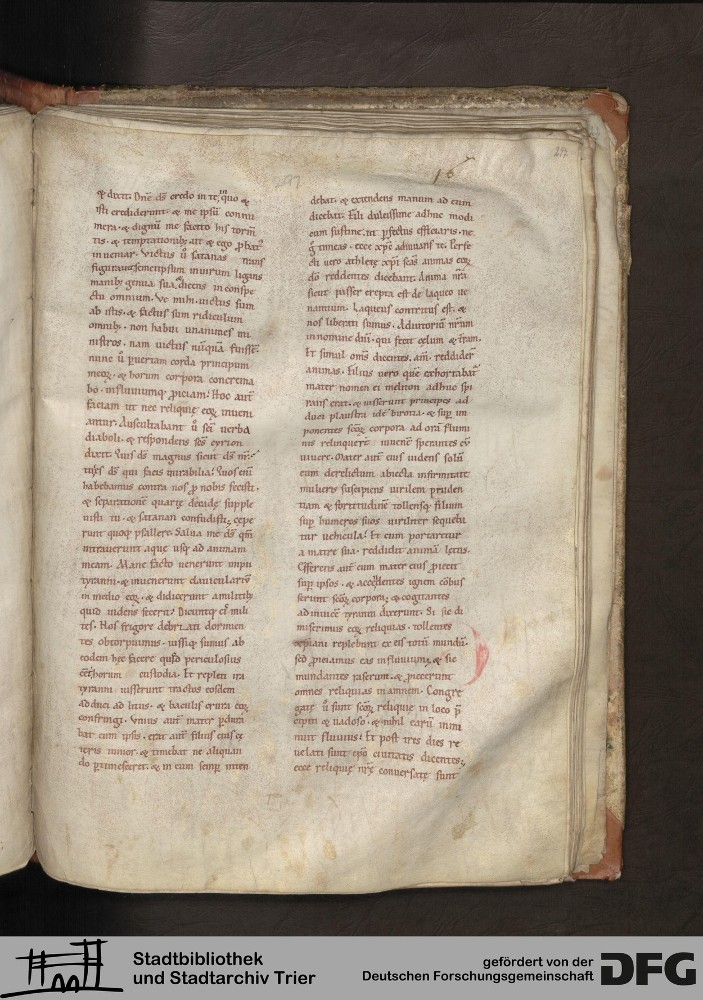 297
15
297
& dixit. Dn̄e ds̄ credo in te, in quo &
isti crediderunt. & me ipsū connu
mera. & dignū me facito his torm̄
tis. & temptationib; ut & ego ꝓbat᷒
inveniar. Victus ū satanas trans
figuravit semetipsum in virum ligans
manib; genua sua, & dicens in conspe
ctu omnium. Ve mihi. victus sum
ab istis. & factus sum ridiculum
omnib;. non habui unanimes mi
nistros. nam victus nūquā fuissē.
nunc ū ꝑvertam corda principum
meoꝝ. & horum corpora concrema
bo. influviumq; ꝓiciam. Hoc aut̄
faciam ut nec reliquie eoꝝ inveni
antur. Auscultabant ū sc̄i verba
diaboli. & respondens sc̄s cyrion
dixit. Quis ds̄ magnus sicut ds̄ nr̄.
tu es ds̄ qui facis mirabilia. Quos eni
habebamus contra nos ꝓ nobis fecisti.
& separationē quarte decade supple
visti tu. & satanan confudisti; cepe
runt quoq; psallere. Salvū me ds̄ qm̄
intraverunt aque usq; ad animam
meam. Mane facto venerunt impii
tyranni. & invenerunt claviculariū
in medio eoꝝ. & didicerunt a militib;
quid videns fecerit. Dicuntq; ei mili
tes. Hos frigore debilitati dormien
tes obtorpuimus. iussiq; sumus ab
eodem hec facere quid periculosius
cet̄horum custodia. Et repleti ira
tyranni. iusserunt tractos eosdem
adduci ad litus. & baculis crura eoꝝ
confringi. Unius aut̄ mater ꝑdura
bat cum ipsis. erat aut̄ filius eius cę
teris minor. & timebat ne aliquan
do ꝑtimesceret. & in eum semꝑ inten
debat. & extendens manum ad eum
dicebat. Fili dulcissime adhuc modi
cum sustine. ut ꝑfectus efficiaris. ne
timeas. ecce xp̄c adiuvans te. Perfe
cti vero athletę xp̄i sc̄as animas eoꝝ
dō reddentes dicebant. Anima nr̄a
sicut passer erepta est de laqueo ve
nantium. Laqueus contritus est. &
nos liberati sumus. Adiutoriū nr̄um
in nomine dn̄i. qui fecit cęlum & t̄ram.
Et simul om̄s dicentes. am̄. reddider̄
animas. Filius vero quē exhortabat᷒
mater nomen ei meliton adhuc spi
rans erat. & iusserunt principes ad
duci plaustri idē birotia. & suꝑ im
ponentes sc̄oꝝ corpora ad orā flumi
nis relinquere iuvenē sperantes eū
vivere. Mater aut̄ eius videns solū
eum derelictum abiecta infirmitate
mulieris suscipiens virilem pruden
tiam & fortitudinē tollensq; filium
suꝑ humeros suos viriliter sequeba
tur vehicula. Et cum portaretur
a matre sua. reddidit animā lętus.
Efferens aut̄ eum mater eius ꝓiecit
suꝑ ipsos. & accedentes ignem cōbus
serunt sc̄oꝝ corpora; & cogitantes
ad invicē tyranni dixerunt. Si sic di
miserimus eoꝝ reliquias. tollentes
xp̄iani replebunt ex eis totū mundū.
sed ꝓiciamus eas influvium. & sic
mundantes raserunt. & ꝓiecerunt
omnes reliquias in amnem. Congre
gatę ū sunt sc̄oꝝ reliquie in loco p̄
cipiti & vadoso. & nihil earū immi
nuit fluvius. Et post tres dies re
velati sunt ep̄o civitatis dicentes;
ecce reliquię nr̄ę conversatę sunt
Stadtbibliothek
und Stadtarchiv Trier
gefördert von der
Deutschen Forschungsgemeinschaft
DFG